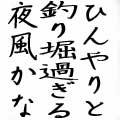 ひんやりと
釣り堀過ぎる
夜風かな